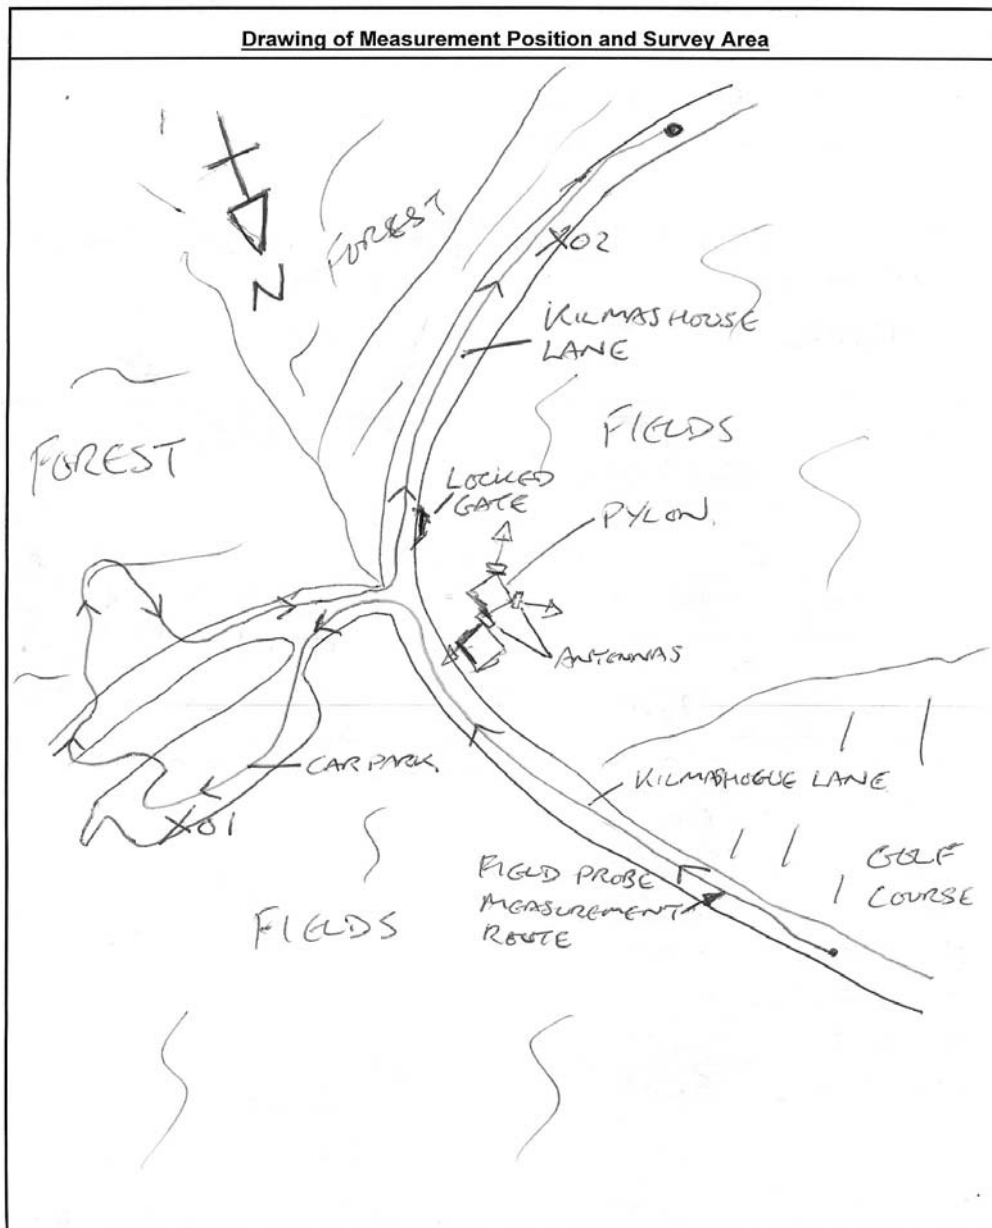 Drawing of Measurement Position and Survey Area
N
FOREST
X02
KILMASHOUSE
LANE
FIELDS
FOREST
LOCKED
GATE
PYLON.
ANTENNAS
CAR PARK
KILMASHOGUE LANE
X01
GOLF
COURSE
FIELD PROBE
MEASUREMENT
ROUTE
FIELDS